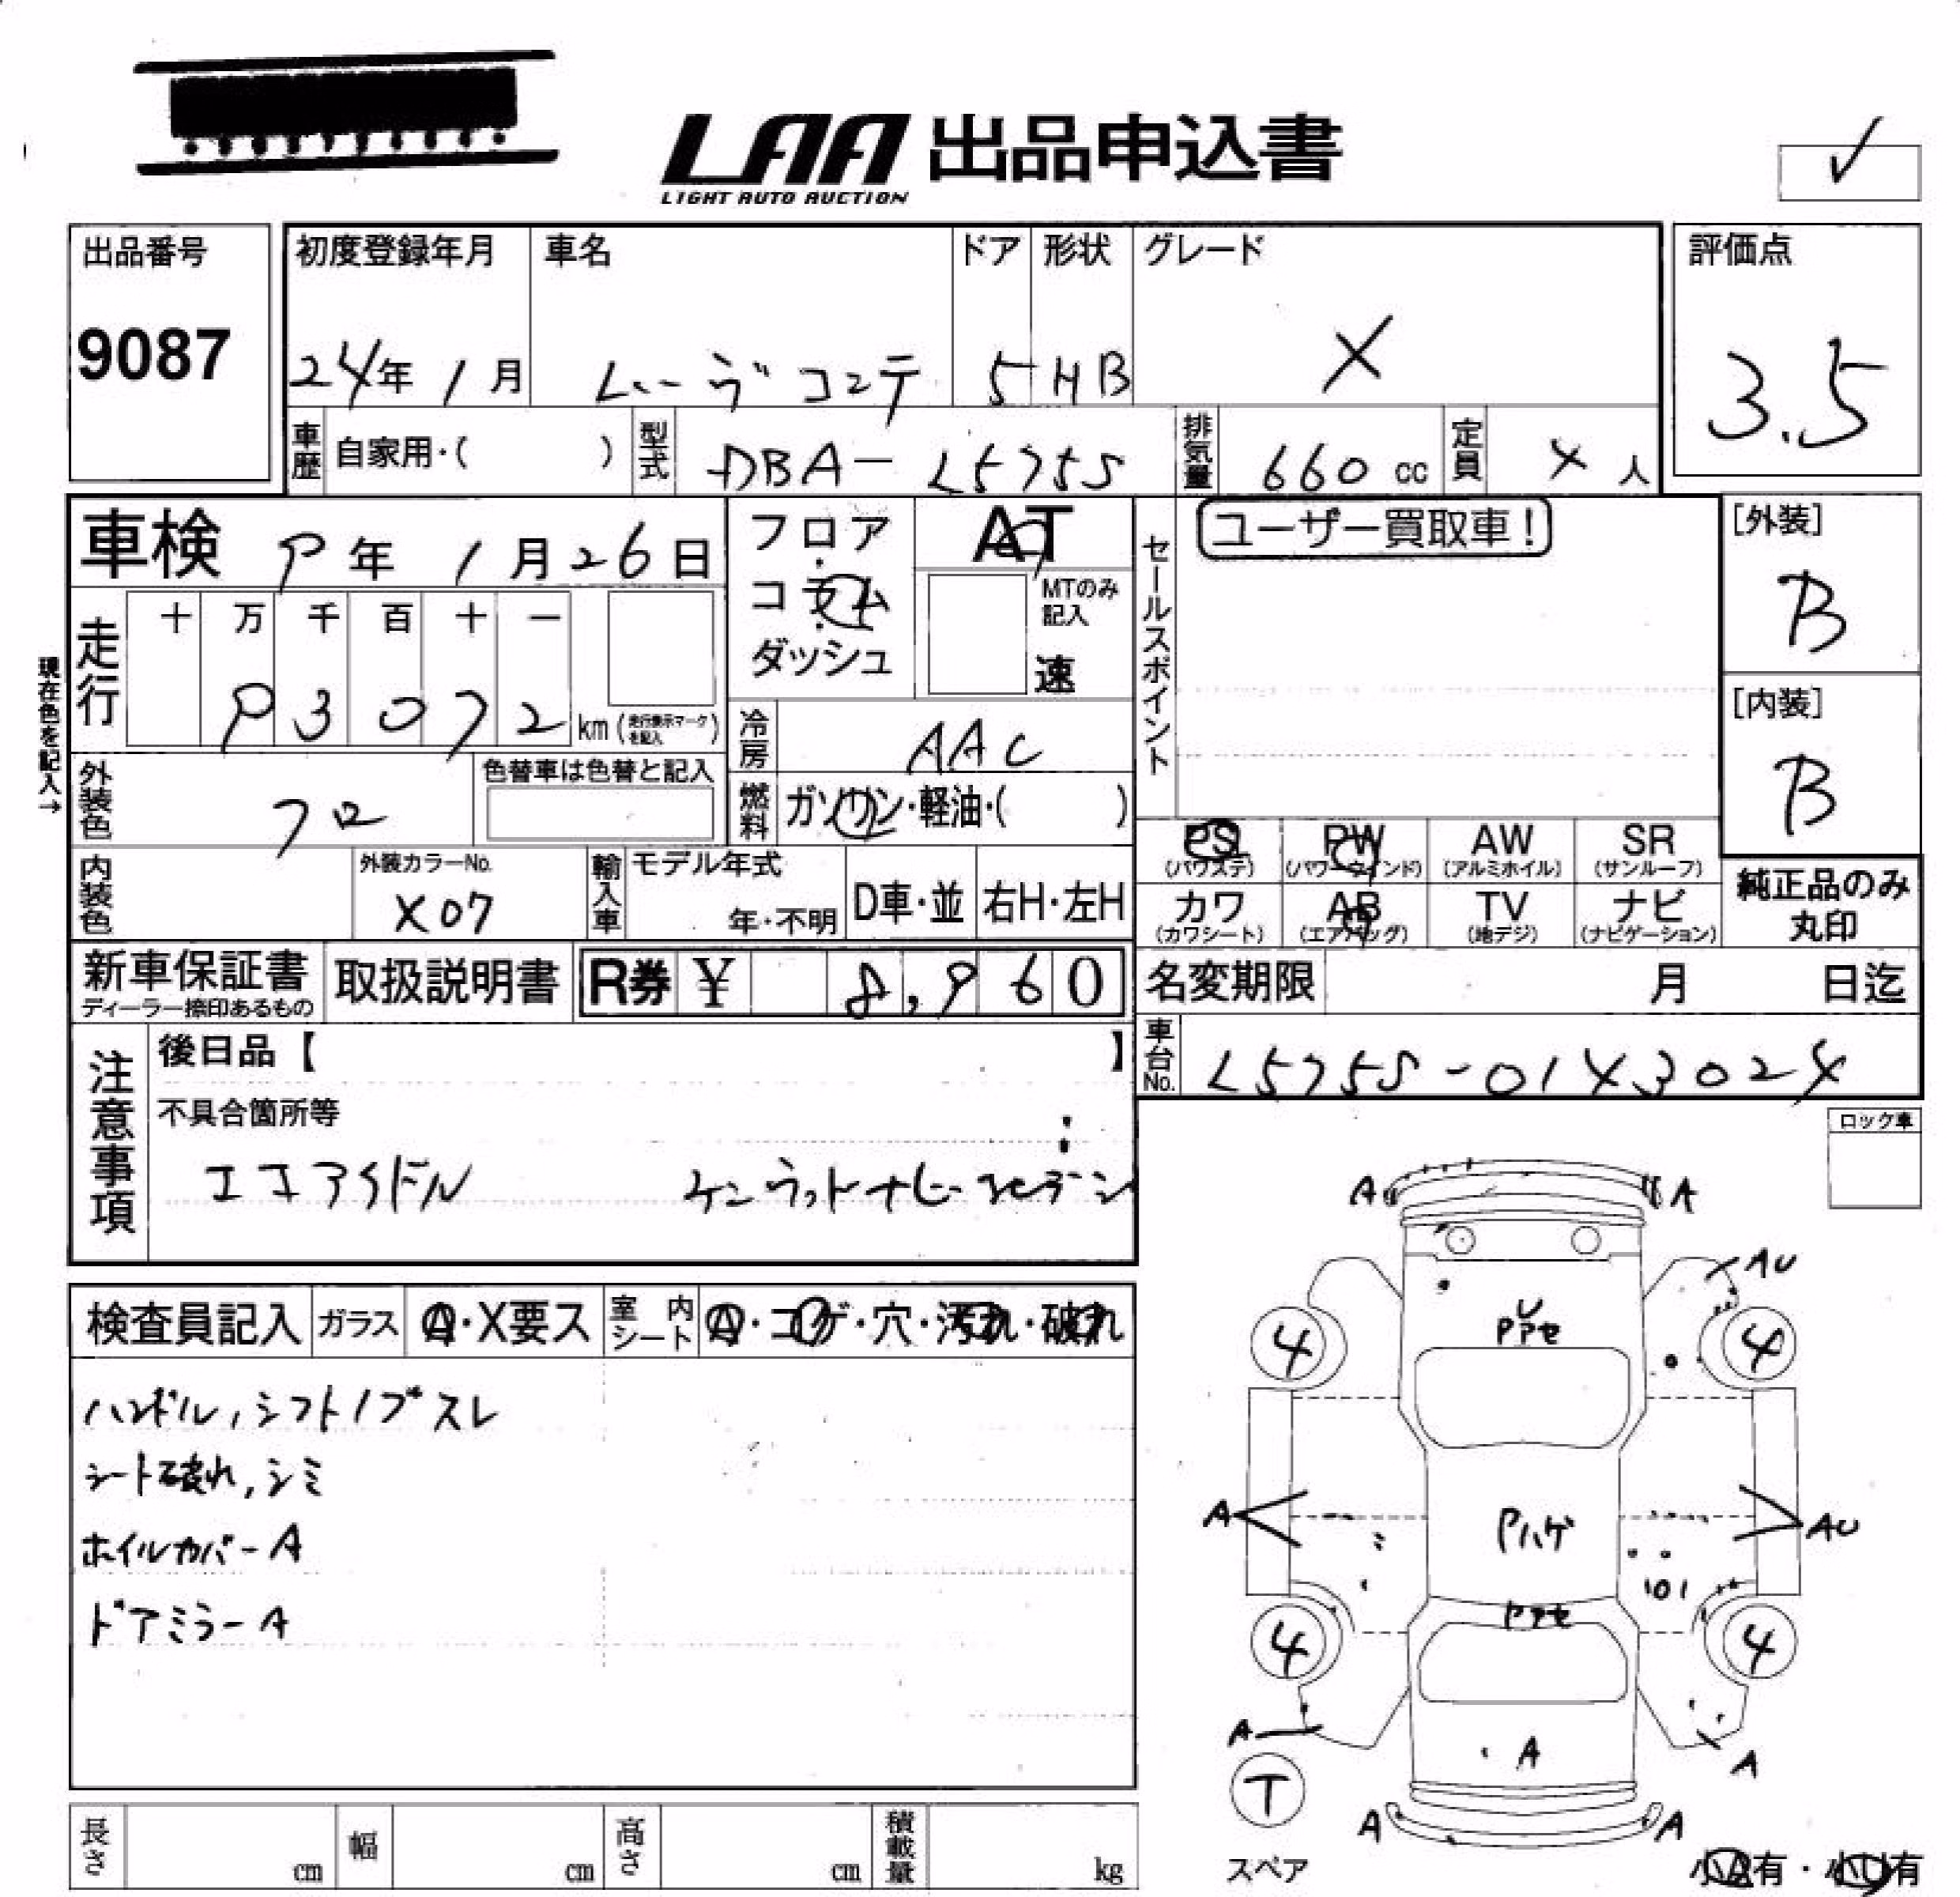 LAA 出品申込書
LIGHT AUTO AUCTION
出品番号
9087
初度登録年月
24年 1月
車名
ムーヴコンテ
ドア
5
形状
HB
グレード
X
評価点
3.5
車歴
自家用・( )
型式
DBA-L575S
排気量
660 cc
定員
4 人
車検 9年 1月26日
フロア・コラム・ダッシュ
AT
MTのみ記入
速
セールスポイント
ユーザー買取車!
[外装]
B
[内装]
B
現在色を記入→
走行
十 万 千 百 十 一
93072 km (走行表示マークを記入)
冷房
AAC
外装色
クロ
色替車は色替と記入
燃料
ガソリン・軽油・( )
内装色
外装カラーNo.
X07
輸入車
モデル年式
年・不明
D車・並
右H・左H
PS
(パワステ)
PW
(パワーウインド)
AW
(アルミホイル)
SR
(サンルーフ)
カワ
(カワシート)
AB
(エアバッグ)
TV
(地デジ)
ナビ
(ナビゲーション)
純正品のみ
丸印
新車保証書
ディーラー捺印あるもの
取扱説明書
R券 ¥ 8,960
名変期限 月 日迄
車台No.
L575S-0143024
注意事項
後日品【 】
不具合箇所等
エコアイドル
ケンウッドナビ
ロック車
検査員記入
ガラス
A・X要ス
室内シート
A・コゲ・穴・汚れ・破れ
ハンドル,シフトノブスレ
シート破れ,シミ
ホイルカバーA
ドアミラーA
A A
AU
U
Pアセ
4 4
A Pハゲ AU
Pアセ
4 4
A A A
T
スペア
A A
小A有・小U有
長さ cm
幅 cm
高さ cm
積載量 kg